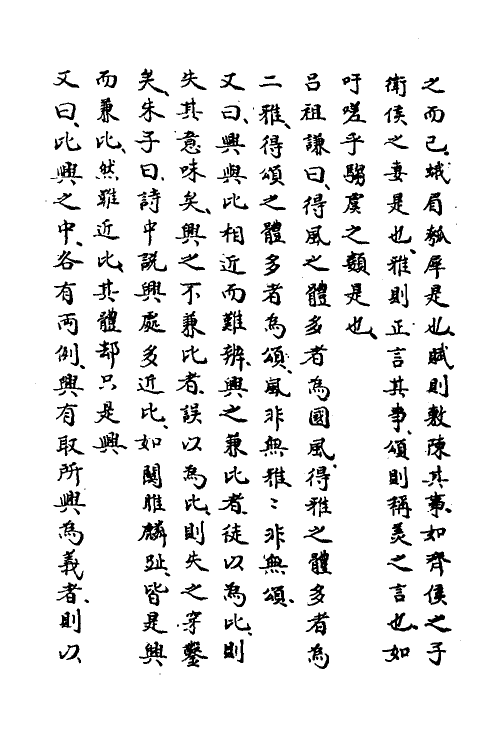 之而已、蛾眉瓠犀是也、賦則敷陳其事、如齊侯之子
衛侯之妻是也、雅則正言其事、頌則稱美之言也、如
吁嗟乎騶虞之類是也、
呂祖謙曰、得風之體多者為國風、得雅之體多者為
二雅、得頌之體多者為頌、風非無雅、〻非無頌、
又曰、興與比相近而難辨、興之兼比者、徒以為比、則
失其意味矣、興之不兼比者、誤以為比、則失之穿鑿
矣、朱子曰、詩中說興處多近比、如關雎麟趾、皆是興
而兼比、然雖近比、其體却只是興
又曰、比興之中、各有兩例、興有取所興為義者、則以